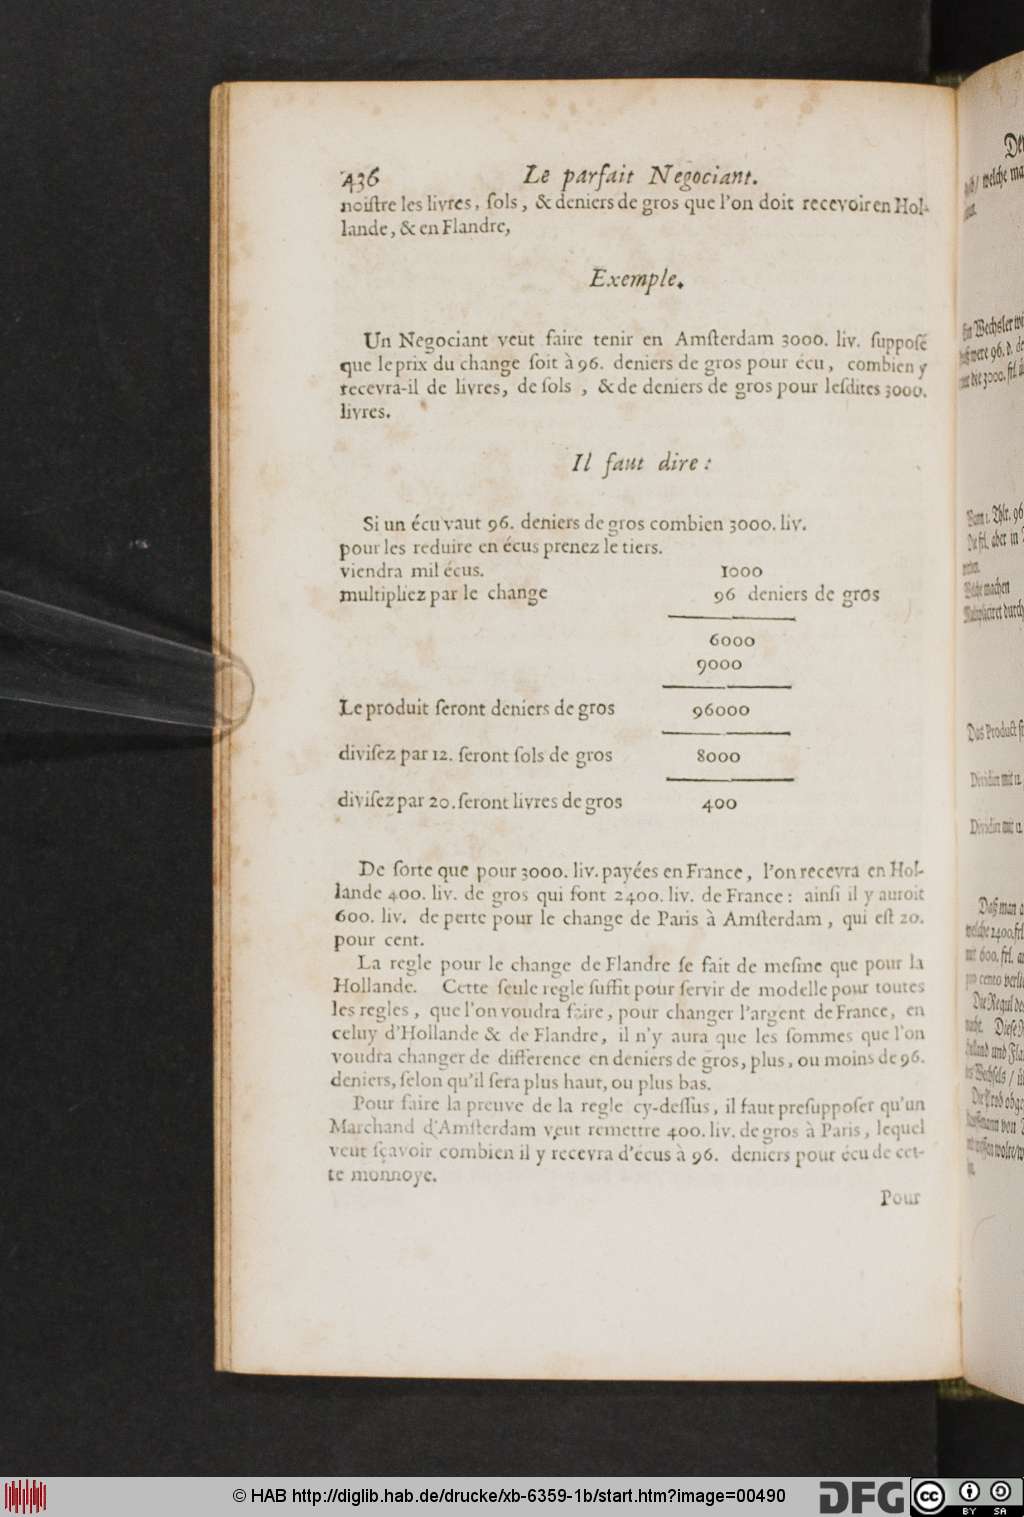 436 Le parfait Negociant.
noiſtre les livres, ſols, & deniers de gros que l'on doit recevoir en Hol-
lande, & en Flandre,
Exemple.
Un Negociant veut faire tenir en Amſterdam 3000. liv. ſuppoſé
que le prix du change ſoit à 96. deniers de gros pour écu, combien y
recevra-il de livres, de ſols , & de deniers de gros pour leſdites 3000.
livres.
Il faut dire :
Si un écu vaut 96. deniers de gros combien 3000. liv.
pour les reduire en écus prenez le tiers.
viendra mil écus. 1000
multipliez par le change 96 deniers de gros
6000
9000
Le produit ſeront deniers de gros 96000
diviſez par 12. ſeront ſols de gros 8000
diviſez par 20. ſeront livres de gros 400
De ſorte que pour 3000. liv. payées en France, l'on recevra en Hol-
lande 400. liv. de gros qui font 2400. liv. de France : ainſi il y auroit
600. liv. de perte pour le change de Paris à Amſterdam, qui eſt 20.
pour cent.
La regle pour le change de Flandre ſe fait de meſme que pour la
Hollande. Cette ſeule regle ſuffit pour ſervir de modelle pour toutes
les regles, que l'on voudra faire, pour changer l'argent de France, en
celuy d'Hollande & de Flandre, il n'y aura que les ſommes que l'on
voudra changer de difference en deniers de gros, plus, ou moins de 96.
deniers, ſelon qu'il ſera plus haut, ou plus bas.
Pour faire la preuve de la regle cy-deſſus, il faut preſuppoſer qu'un
Marchand d'Amſterdam veut remettre 400. liv. de gros à Paris, lequel
veut ſçavoir combien il y recevra d'écus à 96. deniers pour écu de cet-
te monnoye.
Pour
welche ma
Ein Wechsler wi
were 96. d. de
die 3000. frl.
Wann 1. Thlr. 96
Die frl. aber in
Welche machen
Multipliciret durch
Das Product
Dividirt mit 12.
Dividirt mit
Daß man
welche 2400. frl.
600. frl.
pro cento
Die Regul des
Holland und
© HAB http://diglib.hab.de/drucke/xb-6359-1b/start.htm?image=00490 DFG cc BY SA